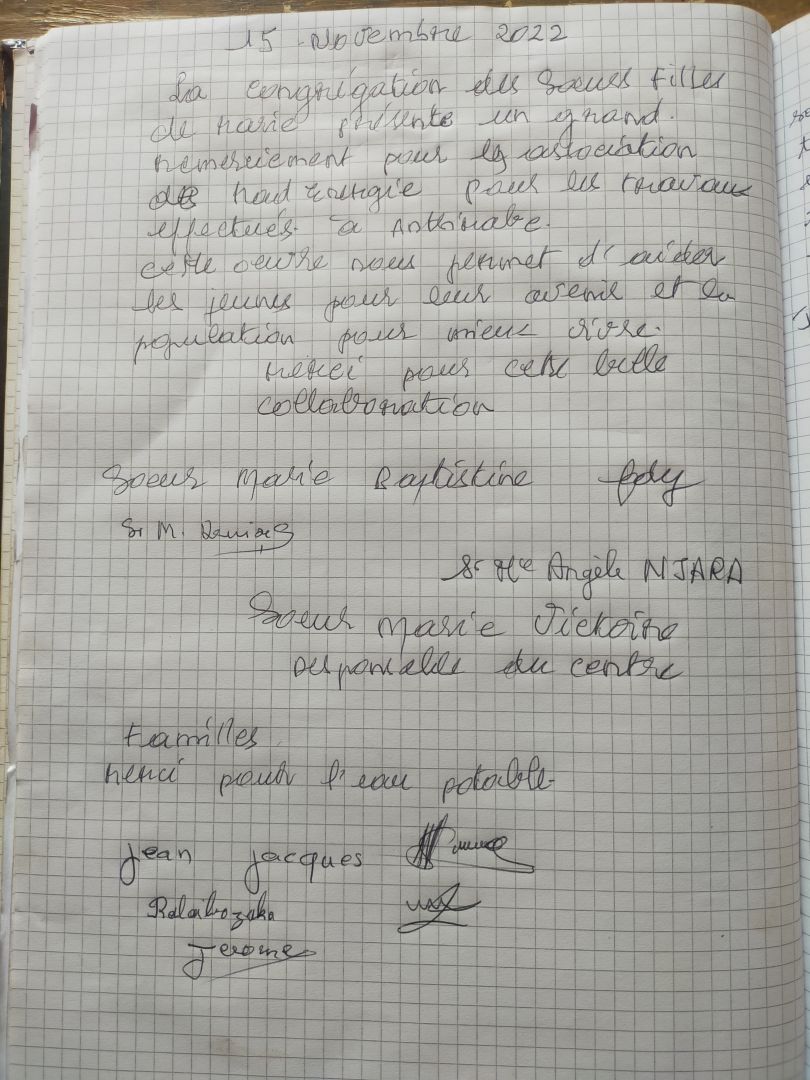 15 Novembre 2022
La congrégation des Soeurs Filles
de Marie présente un grand.
remerciement pour l'association
de Haut Energie pour les travaux
effectués à Antsirabe.
cette oeuvre nous permet d'aider
les jeunes pour leur avenir et la
population pour mieux vivre.
Merci pour cette belle
collaboration
Soeur Marie Baptistine
Sr M.
Sr Me Angèle NJARA
Soeur Marie Victoire
responsable du centre
Familles
Merci pour l'eau potable.
Jean Jacques
Jerome